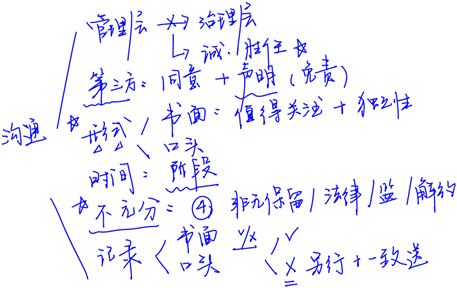 管理层 → 治理层
↳ 诚、胜任 ☆
第三方：同意 + 声明（免责）
沟通
☆ 形式 / 书面：值得关注 + 独立性
\ 口头
时间：阶段
☆ 不充分：④ 非无保留 / 法律 / 监 / 解约
记录 < 书面 √/× / √
口头 \ × 另行 + 一致送